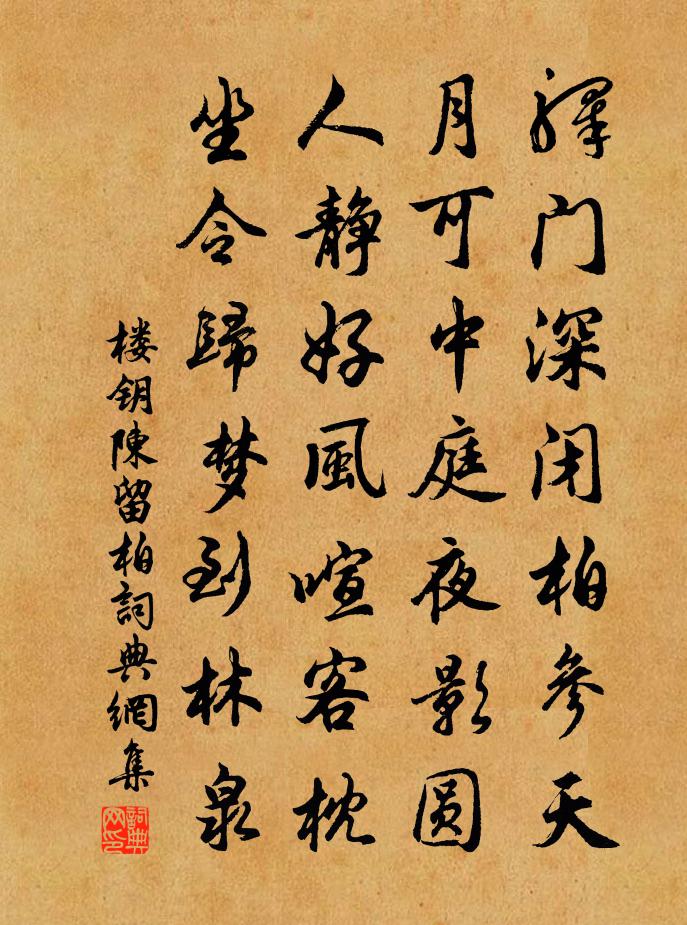 驛门深闭柏參天
月可中庭夜影圆
人静好風喧客枕
坐令歸梦到林泉
楼钥陳留柏詞典網集
詞典网印